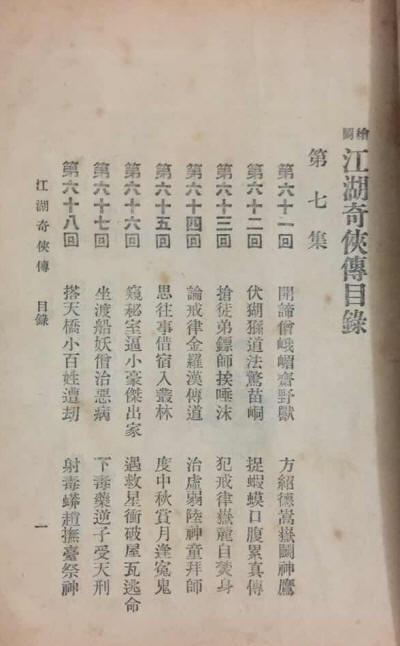 繪圖江湖奇俠傳目錄
第七集
第六十一回 開諦僧峨嵋齋野獸 方紹德嵩嶽鬬神鷹
第六十二回 伏猢猻道法驚苗峒 捉蝦蟆口腹累真傳
第六十三回 搶徒弟鏢師挨唾沫 犯戒律嶽麓自焚身
第六十四回 論戒律金羅漢傳道 治虛弱陸神童拜師
第六十五回 思往事借宿入叢林 度中秋賞月逢冤鬼
第六十六回 窺秘室逼小豪傑出家 遇救星衝破屋瓦逃命
第六十七回 坐渡船妖僧治惡病 下毒藥逆子受天刑
第六十八回 搭天橋小百姓遭刧 射毒蟒趙撫臺祭神
江湖奇俠傳 目錄 一